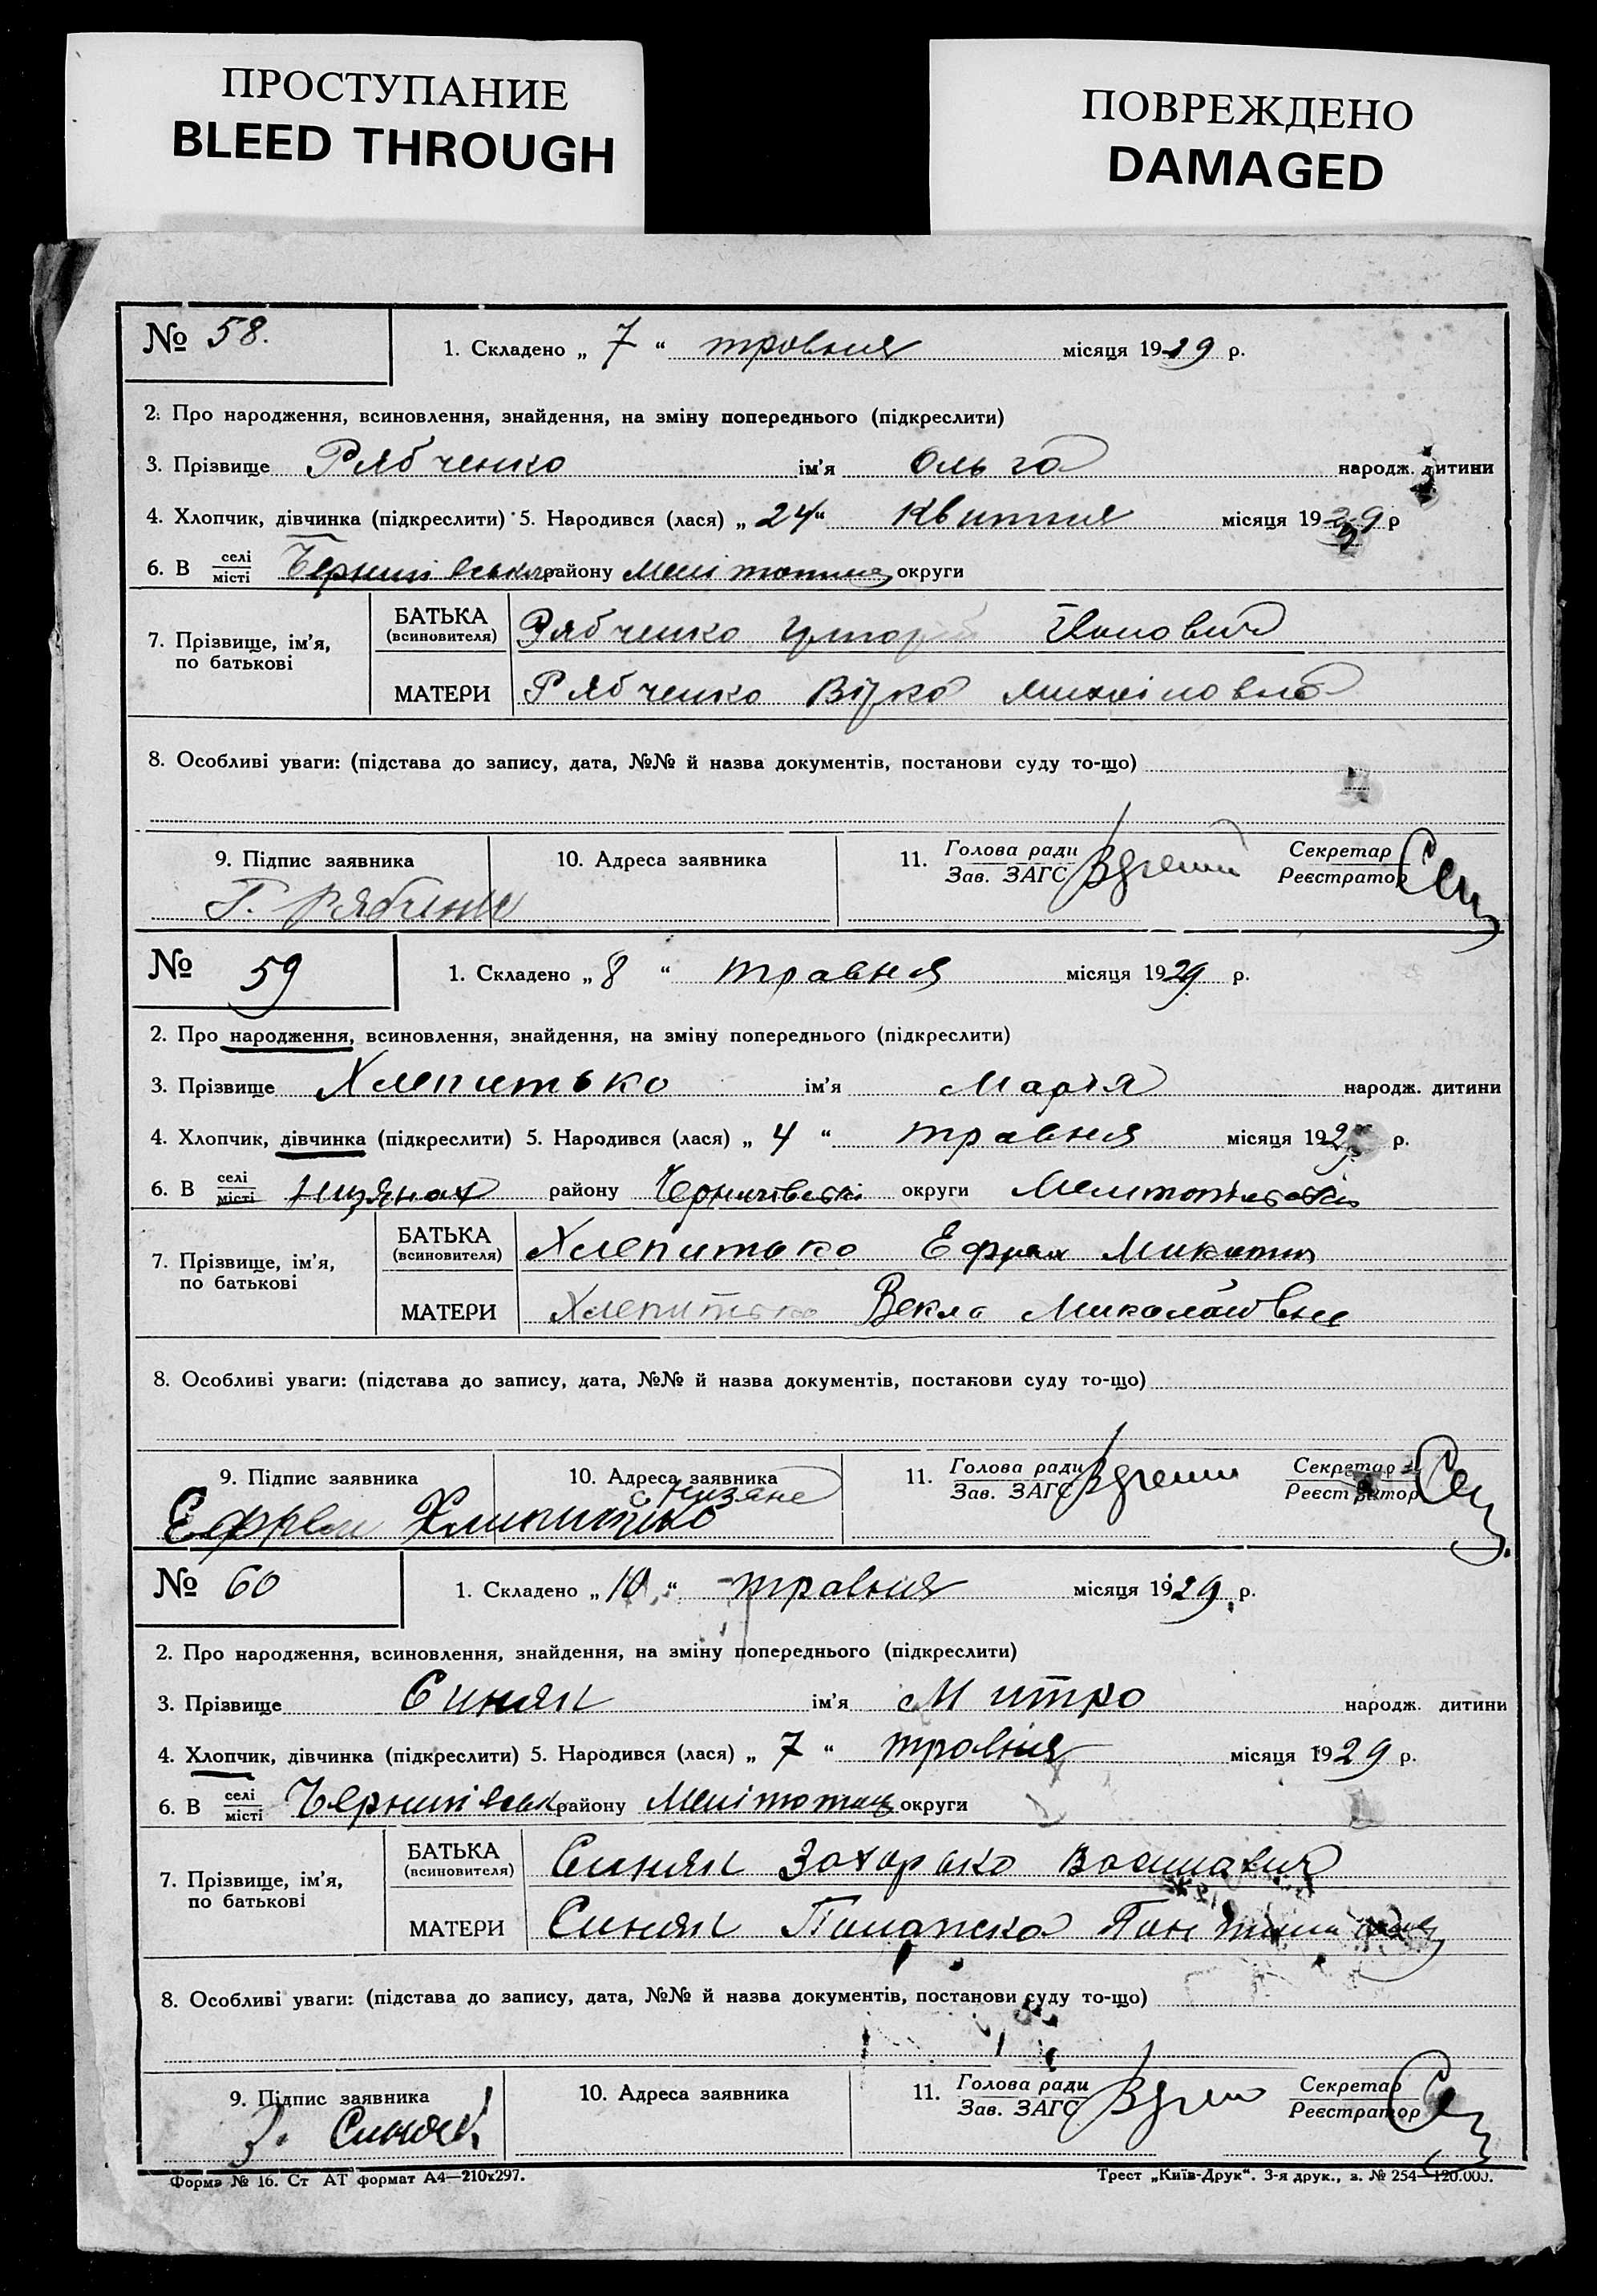 ПРОСТУПАНИЕ
BLEED THROUGH
ПОВРЕЖДЕНО
DAMAGED
№ 58. 1. Складено „ 7 “ травня місяця 1929 р.
2. Про народження, всиновлення, знайдення, на зміну попереднього (підкреслити)
3. Прізвище Рябченко ім'я Ольга народж. дитини
4. Хлопчик, дівчинка (підкреслити) 5. Народився (лася) „ 24 “ Квитня місяця 1929 р
6. В селі місті району округи
7. Прізвище, ім'я, по батькові
БАТЬКА (всиновителя) Рябченко Іванович
МАТЕРИ Рябченко
8. Особливі уваги: (підстава до запису, дата, №№ й назва документів, постанови суду то-що)
9. Підпис заявника 10. Адреса заявника 11. Голова ради Зав. ЗАГС Секретар Реєстратор
Г. Рябченко
№ 59 1. Складено „ 8 “ травня місяця 1929 р.
2. Про народження, всиновлення, знайдення, на зміну попереднього (підкреслити)
3. Прізвище Хлепитько ім'я Марія народж. дитини
4. Хлопчик, дівчинка (підкреслити) 5. Народився (лася) „ 4 “ травня місяця 1929 р.
6. В селі місті Низянах району округи
7. Прізвище, ім'я, по батькові
БАТЬКА (всиновителя) Хлепитько Ефрем Микитич
МАТЕРИ Хлепитько Векла Миколаївна
8. Особливі уваги: (підстава до запису, дата, №№ й назва документів, постанови суду то-що)
9. Підпис заявника 10. Адреса заявника 11. Голова ради Зав. ЗАГС Секретар Реєстратор
с Низяне
Ефрем
№ 60 1. Складено „ 10 “ травня місяця 1929 р.
2. Про народження, всиновлення, знайдення, на зміну попереднього (підкреслити)
3. Прізвище Синяк ім'я Митро народж. дитини
4. Хлопчик, дівчинка (підкреслити) 5. Народився (лася) „ 7 “ травня місяця 1929 р.
6. В селі місті району округи
7. Прізвище, ім'я, по батькові
БАТЬКА (всиновителя) Синяк Захарько
МАТЕРИ Синяк Палажка
8. Особливі уваги: (підстава до запису, дата, №№ й назва документів, постанови суду то-що)
9. Підпис заявника 10. Адреса заявника 11. Голова ради Зав. ЗАГС Секретар Реєстратор
З. Синяк
Форма № 16. Ст АТ формат А4—210х297. Трест „Київ-Друк“. 3-я друк., з. № 254—120.000.